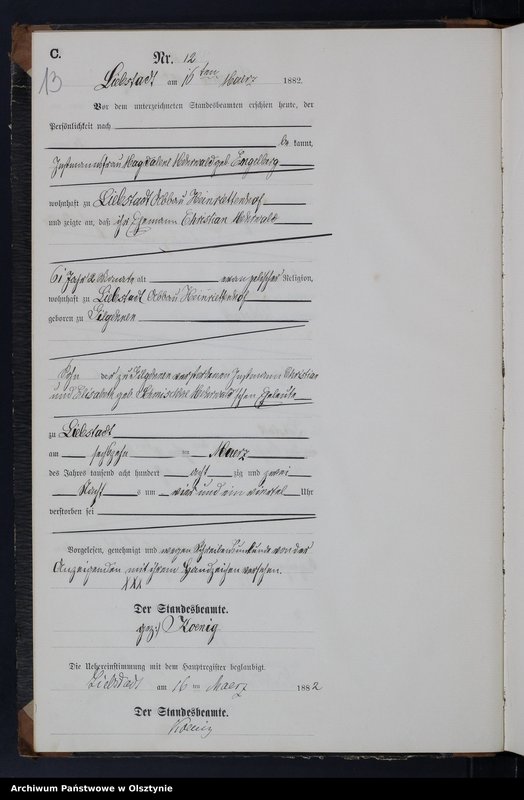 C.
13
Nr. 12
Liebstadt am 16ten Maerz 1882.
Vor dem unterzeichneten Standesbeamten erschien heute, der
Persönlichkeit nach
be kannt,
Instmannsfrau Magdalene geb. Engelberg
wohnhaft zu Liebstadt Abbau Heinriettenhof
und zeigte an, daß ihr Ehemann Christian
61 Jahr 2 Monate alt evangelischer Religion,
wohnhaft zu Liebstadt Abbau Heinriettenhof
geboren zu
Sohn der zu verstorbenen Instmann Christian
und Elisabeth geb. schen Eheleute
zu Liebstadt
am sechszehn ten Maerz
des Jahres tausend acht hundert acht zig und zwei
Nacht s um vier und ein viertel Uhr
verstorben sei
Vorgelesen, genehmigt und wegen Schreibensunkunde von der
Anzeigenden mit ihrem Handzeichen versehen.
XXX
Der Standesbeamte.
gez:) Koenig
Die Uebereinstimmung mit dem Hauptregister beglaubigt.
Liebstadt am 16 ten Maerz 1882
Der Standesbeamte.
Koenig
Archiwum Państwowe w Olsztynie